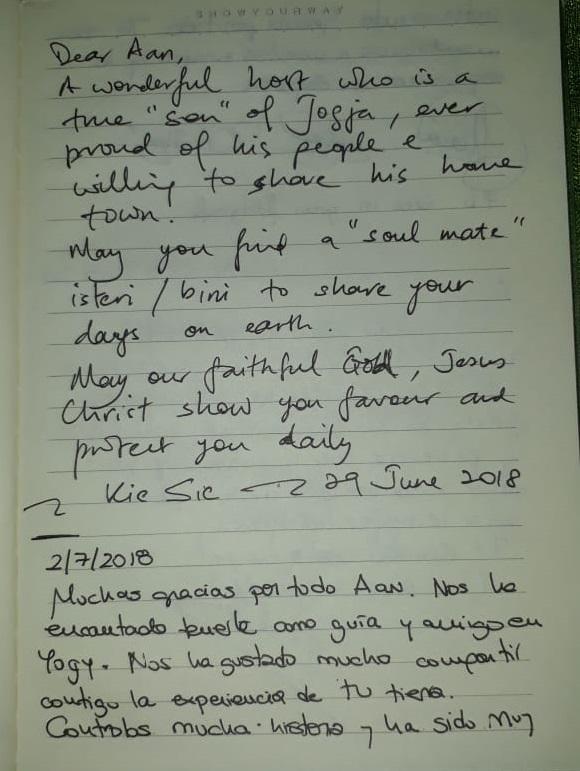 Dear Aan,
A wonderful host who is a
true "son" of Jogja, ever
proud of his people &
willing to share his home
town.
May you find a "soul mate"
isteri / bini to share your
days on earth.
May our faithful God, Jesus
Christ show you favour and
protect you daily
Kie Sie 29 June 2018
2/7/2018
Muchas gracias por todo Aan. Nos ha
encantado tenerte como guía y amigo en
Yogy. Nos ha gustado mucho compartir
contigo la experiencia de tu tierra.
mucha historia y ha sido muy